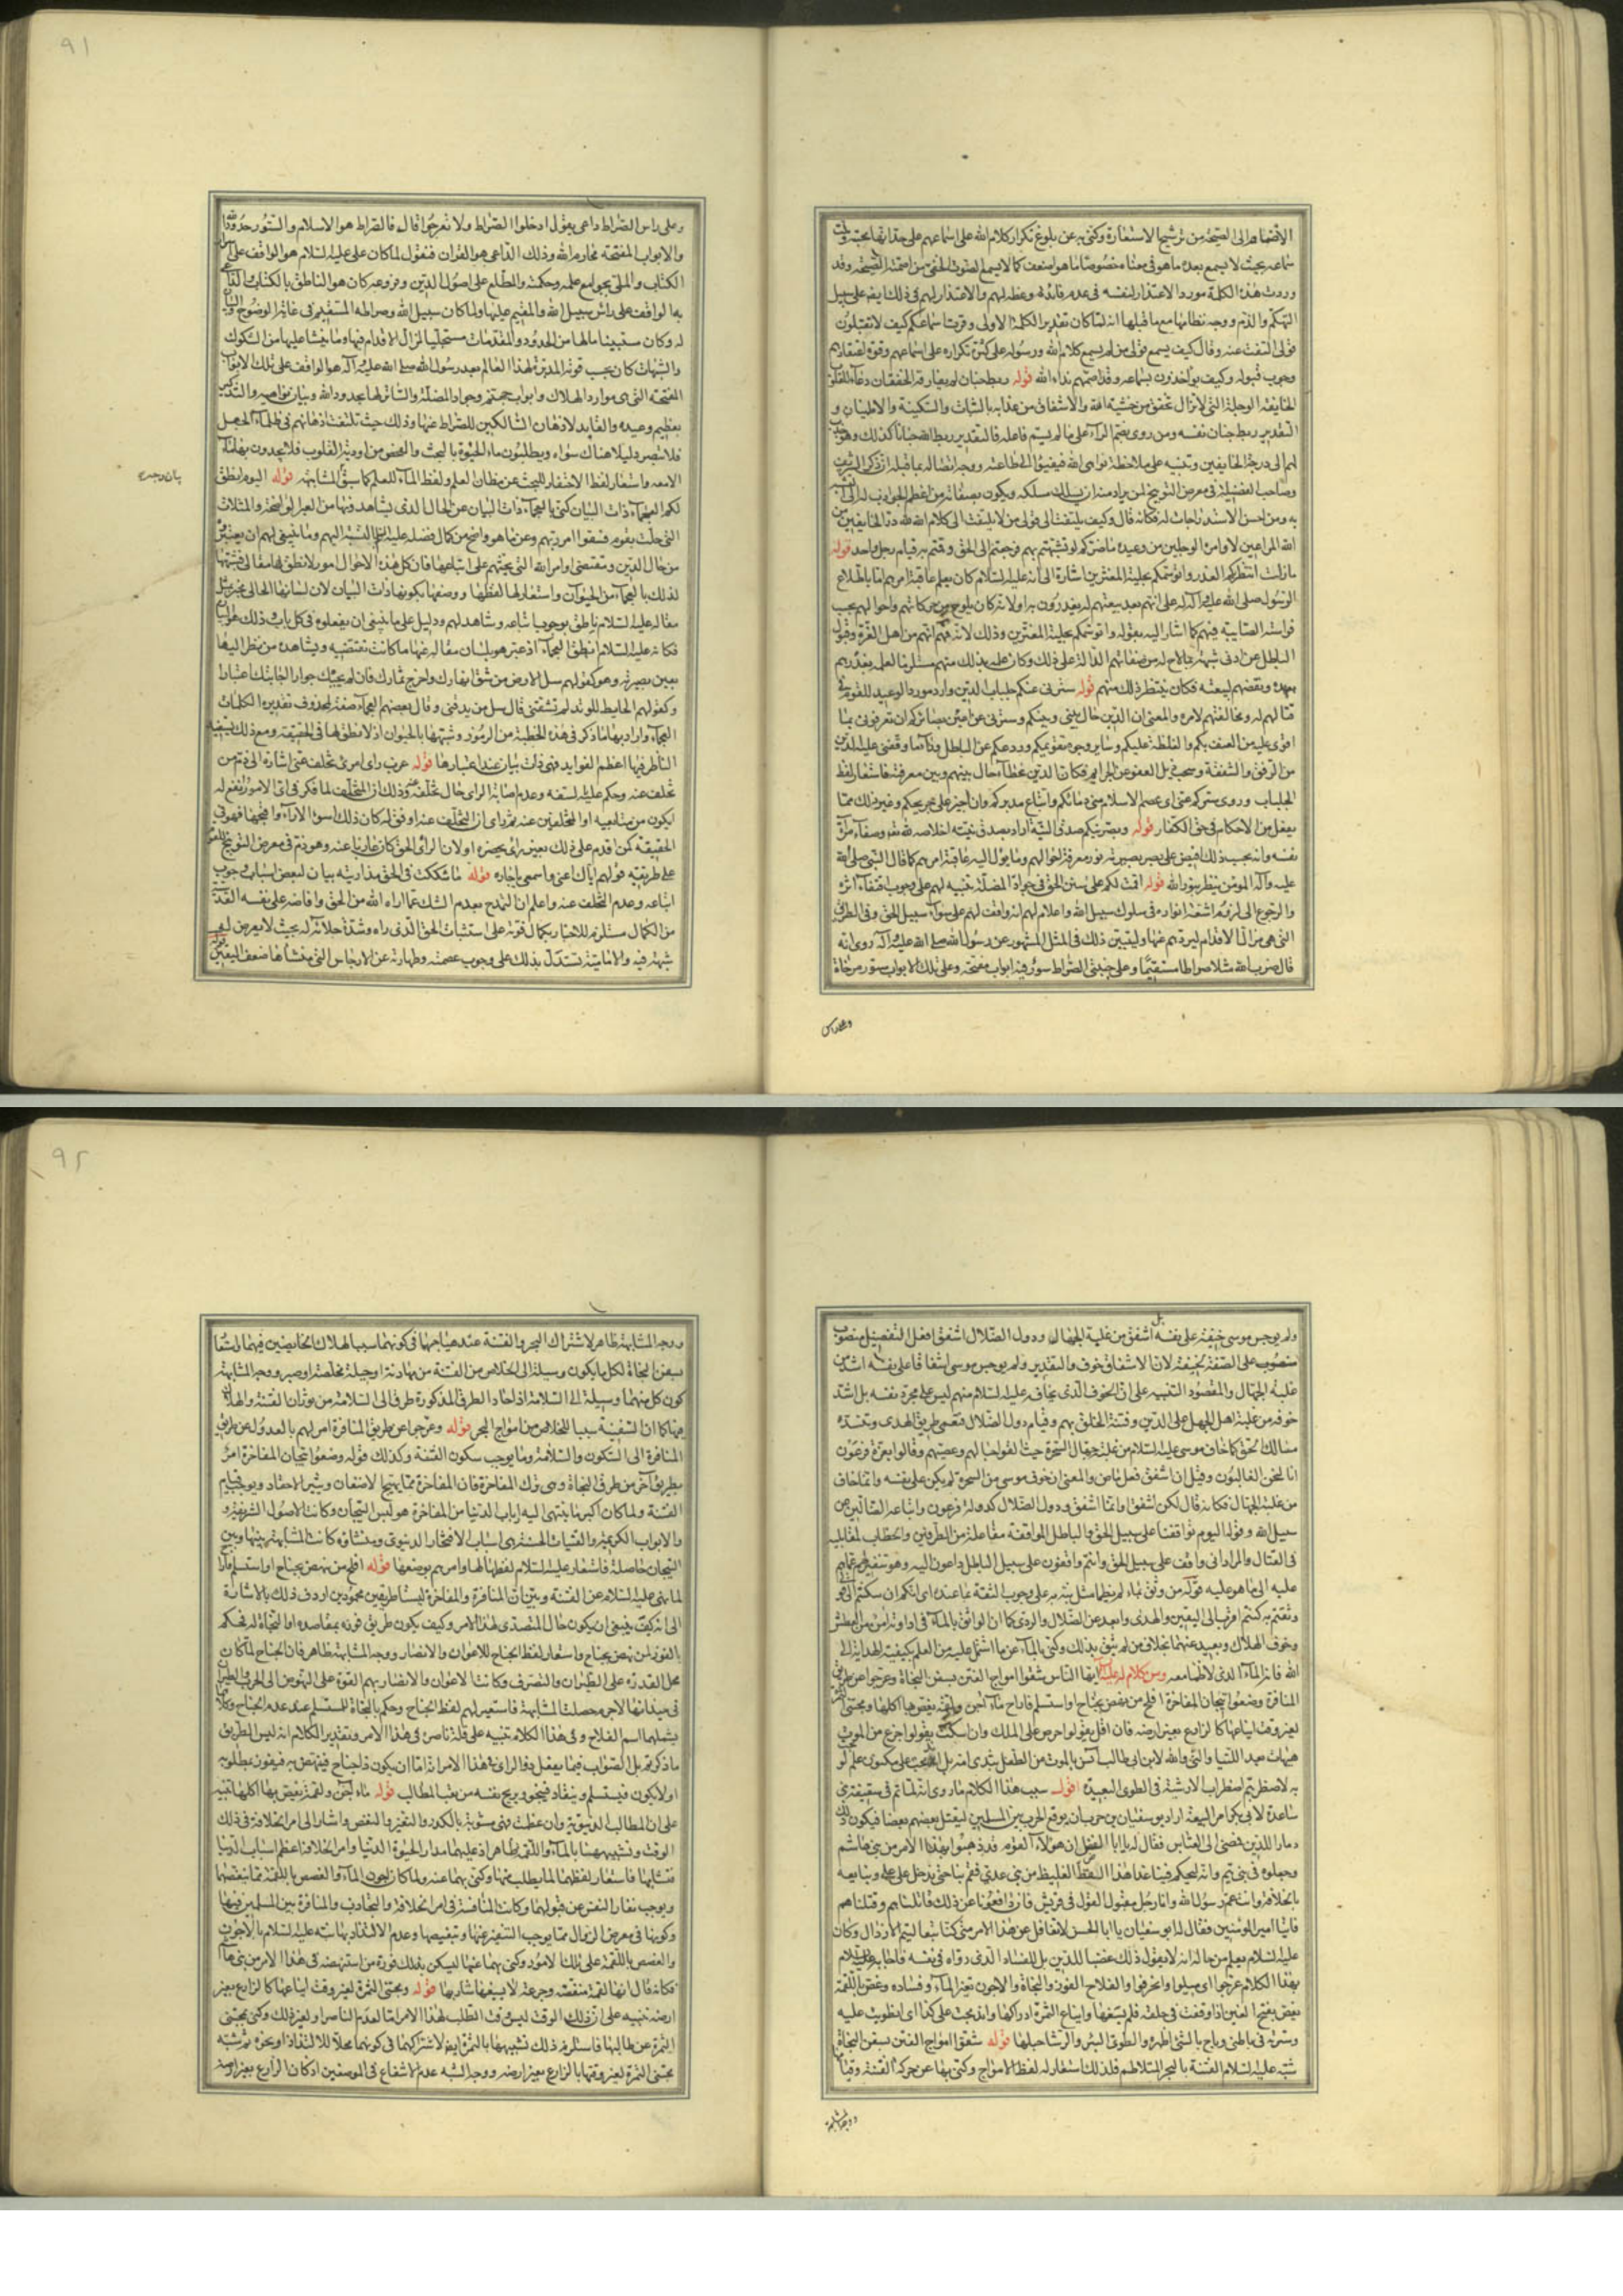 الاصماء الى الصيحة من ترشيح الاستعارة وكنى به عن بلوغ تكرار كلام الله على اسماعهم
سماعه بحيث لا يسمع بعده ما هو في معناه خصوصا ما هو اضعف كما لا يسمع الصوت الخفي من اصمته الصيحة وقد
وردت هذه الكلمة مورد الاعتذار لنفسه في عدم فائدة وعظه لهم والاعتذار لهم في ذلك ايضا على سبيل
التهكم والذم ووجه نظامها مع ما قبلها انه لما كان تقدير الكلمة الاولى وقرت اسماعكم كيف لا تقبلون
قولي التفت عنه وقال كيف يسمع قولي من لم يسمع كلام الله ورسوله على كثرة تكراره على اسماعهم وقوة اعتقادهم
وجوب قبوله وكيف يؤاخذون بسماعه وقد اصمهم نداء الله قوله ربط جنان لم يفارقه الخفقان دعاء للقلوب
الخائفة الوجلة التي لا تزال تخفق من خشية الله والاشفاق من عذابه بالثبات والسكينة والاطمينان و
التقدير ربط جنان نفسه ومن روى بضم الراء على ما لم يسم فاعله فالتقدير ربط الله جنانا كذلك وهو
لهم الى درجة الخائفين وتنبيه على ملاحظة نواهي الله فيفيئوا الى طاعته ووجه اتصاله بما قبله ان ذكر الشريف
وصاحب الفضيلة في معرض التوبيخ لمن يراد منه ان يسلك مسلكه ويكون بصفاته من اعظم الجواذب له الى
به ومن احسن الاستدراجات له فكانه قال وكيف يلتفت الى قولي من لا يلتفت الى كلام الله لله در الخائفين من
الله المراعين لاوامره الوجلين من وعيده ما ضركم لو تشبهتم بهم فرجعتم الى الحق وقمتم به قيام رجل واحد قوله
ما زلت انتظر بكم عواقب الغدر واتوسمكم بحلية المغترين اشارة الى انه عليه السلام كان يعلم عاقبة امرهم اما باطلاع
الرسول صلى الله عليه وآله له على انهم بعد بيعتهم له يغدرون به او لانه كان يلوح من حركاتهم واحوالهم بحسب
فراسته الصائبة فيهم كما اشار اليه بقوله واتوسمكم بحلية المغترين وذلك لانه فهم انهم من اهل الغرة وقبول
الباطل عن ادنى شبهة بما لاح له من صفاتهم الدالة على ذلك وكان علمه بذلك منهم مستلزما لعلمه بغدرهم
بعهده ونقضهم لبيعته فكان ينتظر ذلك منهم قوله سترني عنكم جلباب الدين وارد مورد الوعيد للقوم في
قتالهم له ومخالفتهم لامره والمعنى ان الدين حال بيني وبينكم وسترني عن اعين بصائركم ان تعرفوني بما
اقوى عليه من العنف بكم والغلظة عليكم وسائر وجوه تقويمكم وردعكم عن الباطل
من الرفق والشفقة وسحب ذيل العفو عن الجرائم فكان الدين غطاء حال بينهم وبين معرفته فاستعار لفظ
الجلباب وروي ستركم عني اي عصم الاسلام مني دمائكم واتباع مدبركم وان اجهز على جريحكم وغير ذلك مما
يفعل من الاحكام في حق الكفار قوله وبصرنيكم صدق النية اراد بصدق نيته اخلاصه لله تعالى وصفاء مرآة
نفسه وانه بحسب ذلك افيض على بصر بصيرته نور معرفة احوالهم وما يؤول اليه عاقبة امرهم كما قال النبي صلى الله
عليه وآله المؤمن ينظر بنور الله قوله اقمت لكم على سنن الحق في جواد المضلة تنبيه لهم على وجوب اقتفاء اثره
والرجوع الى لزوم اشعة انواره في سلوك سبيل الله واعلام لهم انه واقف لهم على سواء سبيل الحق وفي الطرق
التي هي مزال الاقدام ليردهم عنها وليتبين ذلك في المثل المشهور عن رسول الله صلى الله عليه وآله روى انه
قال ضرب الله مثلا صراطا مستقيما وعلى جنبتي الصراط سور فيه ابواب مفتحة وعلى تلك الابواب ستور مرخاة
وعلى راس
٩١
وعلى راس الصراط داعي يقول ادخلوا الصراط ولا تعرجوا قال فالصراط هو الاسلام والستور حدود الله
والابواب المفتحة محارم الله وذلك الداعي هو القرآن فنقول لما كان علي عليه السلام هو الواقف على اسرار
الكتاب والملي بجوامع علمه وحكمته والمطلع على اصول الدين وفروعه كان هو الناطق بالكتاب والداعي
به الواقف على راس سبيل الله والمقيم عليها ولما كان سبيل الله وصراطه المستقيم في غاية الوضوح والبيان
له وكان مستبينا ما لها من الحدود والمقدمات مستجليا لمزال الاقدام فيها وما ينشا عليها من الشكوك
والشبهات كان بحسب قوته المدبرة لهذا العالم بعد رسول الله صلى الله عليه وآله هو الواقف على تلك الابواب
المفتحة التي هي موارد الهلاك وابواب جهنم وجواد المضلة والساتر لها بحدود الله وبيان نواهيه والتذكير
بعظيم وعيده والقايد لاذهان السالكين للصراط عنها وذلك حيث تلتفت اذهانهم في ظلمات الجهل
فلا تبصر دليلا هناك سواه ويطلبون ماء الحيوة بالبحث والفحص من اودية القلوب فلا يجدون بها ماء
الا معه واستعار لفظ الاحتفار للبحث عن مظان العلم ولفظ الماء للعلم كما سبق المشابهة قوله اليوم انطق
بيان وجه
لكم العجماء ذات البيان كنى بالعجماء ذات البيان عن الحال التي يشاهدونها من العبر الواضحة والمثلات
التي حلت بقوم فسقوا امر ربهم وعن ما هو واضح من كمال فضله عليه السلام بالنسبة اليهم وما ينبغي لهم ان يعتبروه
من حال الدين ومقتضى اوامر الله التي يحثهم على اتباعها فان كل هذه الاحوال امور لا نطق لها مقالي فشبهها
لذلك بالعجماء من الحيوان واستعار لها لفظها ووصفها بكونها ذات البيان لان لسانها الحالي مخبر بمثل
مقاله عليه السلام ناطق بوجوب اتباعه وشاهد لهم ودليل على ما ينبغي ان يفعلوه في كل باب وذلك هو البيان
فكانه عليه السلام انطق العجماء اذ عبر هو بلسان مقاله عنها ما كانت تقتضيه ويشاهده من نظر اليها
بعين بصيرته وهو كقولهم سل الارض من شق انهارك واخرج ثمارك فان لم تجبك حوارا اجابتك اعتبارا
وكقولهم قال الحايط للوتد لم تشقني قال سل من يدقني وقال بعضهم العجماء صفة لمحذوف تقديره الكلمات
العجماء واراد بها ما ذكر في هذه الخطبة من الرموز وشبهها بالحيوان اذ لا نطق لها في الحقيقة ومع ذلك يستفيد
الناظر فيها اعظم الفوايد فهي ذات بيان عند اعتبارها قوله عزب راى امرئ تخلف عني اشارة الى ذم من
تخلف عنه وحكم عليه بالسفه وعدم اصابة الراى حال تخلفه عنه وذلك ان المتخلف لما فكر في اي الامور انفع له
ان يكون من متابعيه او المتخلفين عنه ثم راى ان التخلف عنه اوفق له كان ذلك اسوء الآراء واقبحها فهو في
الحقيقة كمن اقدم على ذلك بغير راي يحضره او لان الراي الحق كان غازبا عنه وهو ذم في معرض التوبيخ للقوم
على طريقة قولهم اياك اعني واسمعي يا جارة قوله ما شككت في الحق مذ اريته بيان لبعض اسباب وجوب
اتباعه وعدم التخلف عنه واعلم ان التمدح بعدم الشك عما اراه الله من الحق وافاضه على نفسه القدسية
من الكمال مستلزم للاخبار بكمال قوته على استثبات الحق الذي رآه وشدة جلائه له بحيث لا يعرض له
شبهة فيه والامامية تستدل بذلك على وجوب عصمته وطهارته عن الارجاس التي منشأها ضعف اليقين
قوله
ولم يوجس موسى خيفة على نفسه بل اشفق من غلبة الجهال ودول الضلال اشفق افعل التفضيل منصوب
منصوب على الصفة لخيفة لان الاشفاق خوف والتقدير ولم يوجس موسى اشفاقا على نفسه اشد من
غلبة الجهال والمقصود التنبيه على ان الخوف الذي يخافه عليه السلام منهم ليس على مجرد نفسه بل اشد
خوفه من غلبة اهل الجهل على الدين وفتنة الخلق بهم وقيام دول الضلال فتعمى طريق الهدى وتنسد
مسالك الحق كما خاف موسى عليه السلام من غلبة جهال السحرة حيث القوا حبالهم وعصيهم وقالوا بعزة فرعون
انا لنحن الغالبون وقيل ان اشفق فعل ماض والمعنى ان خوف موسى من السحرة لم يكن على نفسه وانما خاف
من غلبة الجهال فكانه قال لكن اشفق وانما اشفق من دول الضلال كدولة فرعون واتباعه الضالين عن
سبيل الله وقوله اليوم تواقفنا على سبيل الحق والباطل المواقفة مفاعلة من الطرفين والخطاب لمقابليه
في القتال والمراد اني واقف على سبيل الحق وانتم واقفون على سبيل الباطل داعون اليه وهو تنفير لهم عما هم
عليه الى ما هو عليه قوله من وثق بماء لم يظما مثل نبه به على وجوب الثقة بما عنده اي انكم ان سكنتم الى قولي
وثقتم به كنتم اقرب الى اليقين والهدى وابعد عن الضلال والردى كما ان الواثق بالماء في اداوته آمن من العطش
وخوف الهلاك وبعيد عنهما بخلاف من لم يثق بذلك وكنى بالماء عما اشتمل عليه من العلم بكيفية الهداية الى
الله فانه الماء الذي لا ظما معه ومن كلام له عليه السلام ايها الناس شقوا امواج الفتن بسفن النجاة وعرجوا عن طريق
المنافرة وضعوا تيجان المفاخرة افلح من نهض بجناح او استسلم فاراح ماء آجن ولقمة يغص بها آكلها ومجتني الثمرة
لغير وقت ايناعها كالزارع بغير ارضه فان اقل يقولوا حرص على الملك وان اسكت يقولوا جزع من الموت
هيهات بعد اللتيا والتي والله لابن ابي طالب آنس بالموت من الطفل بثدي امه بل اندمجت على مكنون علم لو
بحت به لاضطربتم اضطراب الارشية في الطوى البعيدة اقول سبب هذا الكلام ما روى انه لما تم في سقيفة بني
ساعدة لابي بكر امر البيعة اراد ابو سفيان بن حرب ان يوقع الحرب بين المسلمين ليقتل بعضهم بعضا فيكون ذلك
دمارا للدين فمضى الى العباس فقال له يا ابا الفضل ان هؤلاء القوم قد ذهبوا بهذا الامر من بني هاشم
وجعلوه في بني تيم وانه ليحكم فينا غدا هذا الفظ الغليظ من بني عدي فقم بنا حتى ندخل على علي ونبايعه
بالخلافة وانت عم رسول الله وانا رجل مقبول القول في قريش فان دافعونا عن ذلك قاتلناهم وقتلناهم
فاتيا امير المؤمنين فقال له ابو سفيان يا ابا الحسن لا تغافل عن هذا الامر متى كنا تبعا لتيم الارذال وكان
عليه السلام يعلم من حاله انه لا يقول ذلك غضبا للدين بل للفساد الذي رواه في نفسه فاجابه عليه السلام
بهذا الكلام عرجوا اي ميلوا وانحرفوا والفلاح الفوز والنجاة والاجون تغير الماء وفساده وغص باللقمة
يغص بفتح الغين اذا وقفت في حلقه فلم يسغها وايناع الثمرة ادراكها واندمجت على كذا اي انطويت عليه
وسترته في باطني وباح بالشيء اظهره والطوى البئر والرشا حبلها قوله شقوا امواج الفتن بسفن النجاة
شبه عليه السلام الفتنة بالبحر المتلاطم فلذلك استعار له لفظ الامواج وكنى بها عن حركة الفتنة وقيامها
ووجه المشابهة
٩٢
ووجه المشابهة ظاهر لاشتراك البحر والفتنة عند هياجهما في كونهما سببا لهلاك الخائضين فيهما واستعار
سفن النجاة لكل ما يكون وسيلة الى الخلاص من الفتنة من مهادنة او حيلة مخلصة او صبر ووجه المشابهة
كون كل منهما وسيلة الى السلامة اذ احاد الطرق المذكورة طرق الى السلامة من ثوران الفتنة والهلاك
فيها كما ان السفينة سبب للخلاص من امواج البحر قوله وعرجوا عن طريق المنافرة امر لهم بالعدول عن طريق
المنافرة الى السكون والسلامة وما يوجب سكون الفتنة وكذلك قوله وضعوا تيجان المفاخرة امر
بطريق آخر من طرق النجاة وهي ترك المفاخرة فان المفاخرة مما يهيج الاضغان ويثير الاحقاد ويوجب قيام
الفتنة ولما كان اكبر ما ينتهي اليه ارباب الدنيا من المفاخرة هو لبس التيجان وكانت الاصول الشريفة و
والابواب الكريمة والقنيات الحسنة هي اسباب الافتخار الدنيوي ومنشاؤه كانت المشابهة بينها وبين
التيجان حاصلة فاستعار عليه السلام لفظها لها وامرهم بوضعها قوله افلح من نهض بجناح او استسلم فاراح
لما نهى عليه السلام عن الفتنة وبين ان المنافرة والمفاخرة ليستا طريقين محمودين اردف ذلك بالاشارة
الى انه كيف ينبغي ان يكون حال المتصدي لهذا الامر وكيف يكون طريق فوزه بمقاصده او النجاة له فحكم
بالفوز لمن نهض بجناح واستعار لفظ الجناح للاعوان والانصار ووجه المشابهة ظاهر فان الجناح لما كان
محل القدرة على الطيران والتصرف وكانت الاعوان والانصار بهم القوة على النهوض الى الحرب والطيران
في ميدانها لا جرم حصلت المشابهة فاستعير لهم لفظ الجناح وحكم بالنجاة للمستسلم عند عدم الجناح وكلاهما
يشملهما اسم الفلاح وفي هذا الكلام تنبيه على قلة ناصره في هذا الامر وتقدير الكلام انه ليس الطريق
ما ذكرتم بل الصواب فيما يفعل ذو الراي في هذا الامر انه اما ان يكون ذا جناح فينهض به فيفوز بمطلوبه
او لا يكون فيستسلم وينقاد فينجو ويريح نفسه من تعب المطالب قوله ماء آجن ولقمة يغص بها آكلها تنبيه
على ان المطالب الدنيوية وان عظمت فهي مشوبة بالكدر والتغير والنغص واشار الى امر الخلافة في ذلك
الوقت وتشبيهها بالماء واللقمة ظاهر اذ عليهما مدار الحيوة الدنيا وامر الخلافة اعظم اسباب الدنيا
فتشابها فاستعار لفظهما لما يطلب منها وكنى بهما عنه ولما كان اجون الماء والغصص باللقمة مما ينغصهما
ويوجب نفار النفس عن قبولهما وكانت المنافسة في امر الخلافة والتجاذب والمنافرة بين المسلمين فيها
وكونها في معرض الزوال مما يوجب التنفير عنها وتنغيصها وعدم الالتذاذ بها نبه عليه السلام بالاجون
والغصص باللقمة على تلك الامور وكنى بهما عنها ليسكن بذلك فورة من استنهضه في هذا الامر من بني هاشم
فكانه قال انها لقمة منغصة وجرعة لا يسيغها شاربها قوله ومجتني الثمرة لغير وقت ايناعها كالزارع بغير
ارضه تنبيه على ان ذلك الوقت ليس وقت الطلب لهذا الامر اما لعدم الناصر او لغير ذلك وكنى بمجتني
الثمرة عن طالبها فاستلزم ذلك تشبيهها بالثمرة ايضا لاشتراكهما في كونهما محلا للالتذاذ او نحوه ثم شبه
مجتني الثمرة لغير وقتها بالزارع بغير ارضه ووجه الشبه عدم الانتفاع في الموضعين اذ كان الزارع بغير ارضه